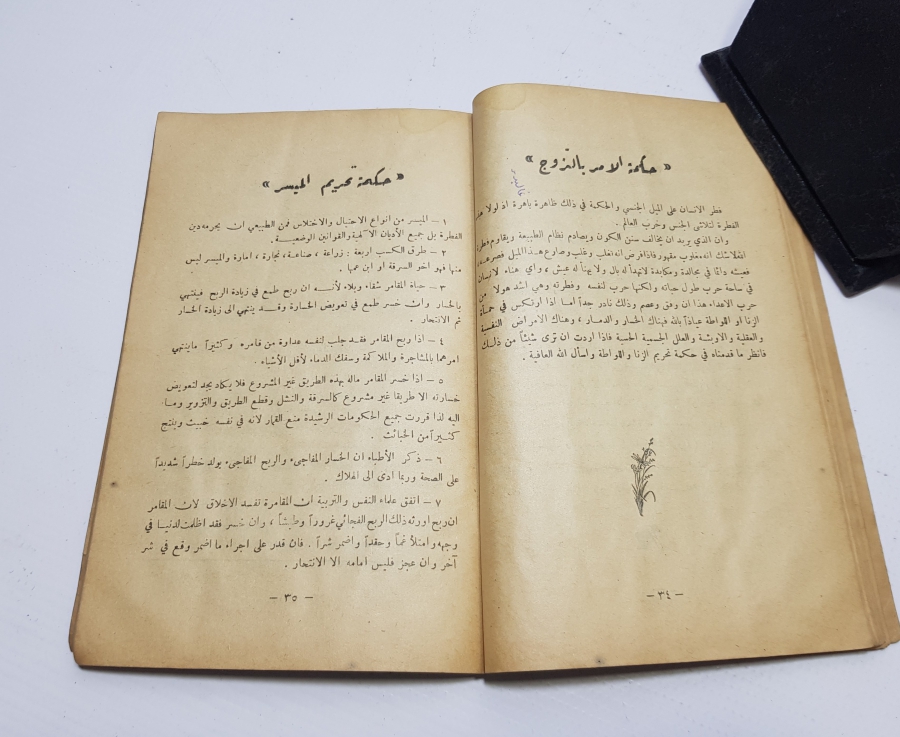 « حكمة الامر بالتزوج »
فطر الانسان على الميل الجنسي والحكمة في ذلك ظاهرة باهرة اذ لولا هذه
الفطرة لتلاشى الجنس وخرب العالم .
وان الذي يريد ان يخالف سنن الكون ويصادم نظام الطبيعة ويقاوم فطرة
انفلاشك انه مغلوب مقهور فاذا فرض انه اغلب وغلب وصارع هذا الميل فصرعه
فعيشه دائماً في مجالدة ومكابدة لايهدأ له بال ولا يهنأ له عيش ، واي هناء لانسان
في ساحة حرب طول حياته ولكنها حرب لنفسه وفطرته وهي اشد هولا من
حرب الاعداء هذا ان وفق وعصم وذلك نادر جداً اما اذا ارتكس في حمأة
الزنا او اللواطة عياذاً بالله فهناك الخسار والدمار ، وهناك الامراض النفسية
والعقلية والاوبئة والعلل الجسمية الخسية فاذا اردت ان ترى شيئاً من ذلك
فانظر ما قدمناه في حكمة تحريم الزنا واللواطة واسأل الله العافية .
— ٣٤ —
« حكمة تحريم الميسر »
١ — الميسر من انواع الاحتيال والاختلاس فمن الطبيعي ان يحرمه دين
الفطرة بل جميع الأديان الآلهية والقوانين الوضعية .
٢ — طرق الكسب اربعة : زراعة ، صناعة ، تجارة ، امارة والميسر ليس
منها فهو اخو السرقة او ابن عمها .
٣ — حياة المقامر شقاء وبلاء لأنه ان ربح طمع في زيادة الربح فينتهي
بالخسار وان خسر طمع في تعويض الخسارة وقد ينتهى الى زيادة الخسار
ثم الانتحار .
٤ — اذا ربح المقامر فقد جلب لنفسه عداوة من قامره وكثيراً ماينتهي
امرهما بالمشاجرة والملاكمة وسفك الدماء لأقل الأشياء .
٥ — اذا خسر المقامر ماله بهذه الطريق غير المشروع فلا يكاد يجد لتعويض
خسارته الا طريقا غير مشروع كالسرقة والنشل وقطع الطريق والتزوير وما
اليه لذا قررت جميع الحكومات الرشيدة منع القمار لانه في نفسه خبيث وينتج
كثيراً من الخبائث .
٦ — ذكر الأطباء ان الخسار المفاجىء والربح المفاجىء يولد خطراً شديداً
على الصحة وربما ادى الى الهلاك .
٧ — اتفق علماء النفس والتربية ان المقامرة تفسد الاخلاق لان المقامر
ان ربح اورثه ذلك الربح الفجائي غروراً وطيشاً ، وان خسر فقد اظلمت لدنيا في
وجهه وامتلأ غماً وحقداً واضمر شراً . فان قدر على اجراء ما اضمر وقع في شر
آخر وان عجز فليس امامه الا الانتحار .
— ٣٥ —